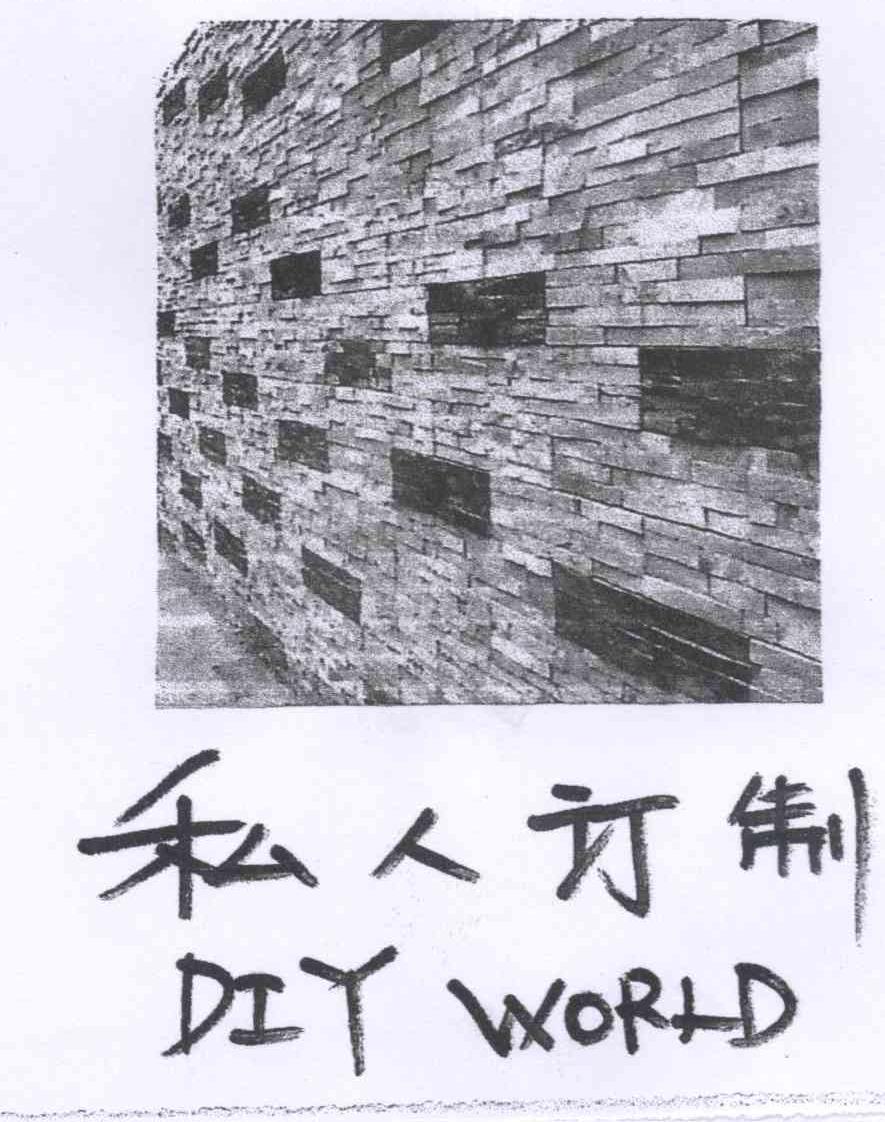 私人订制
DIY WORLD